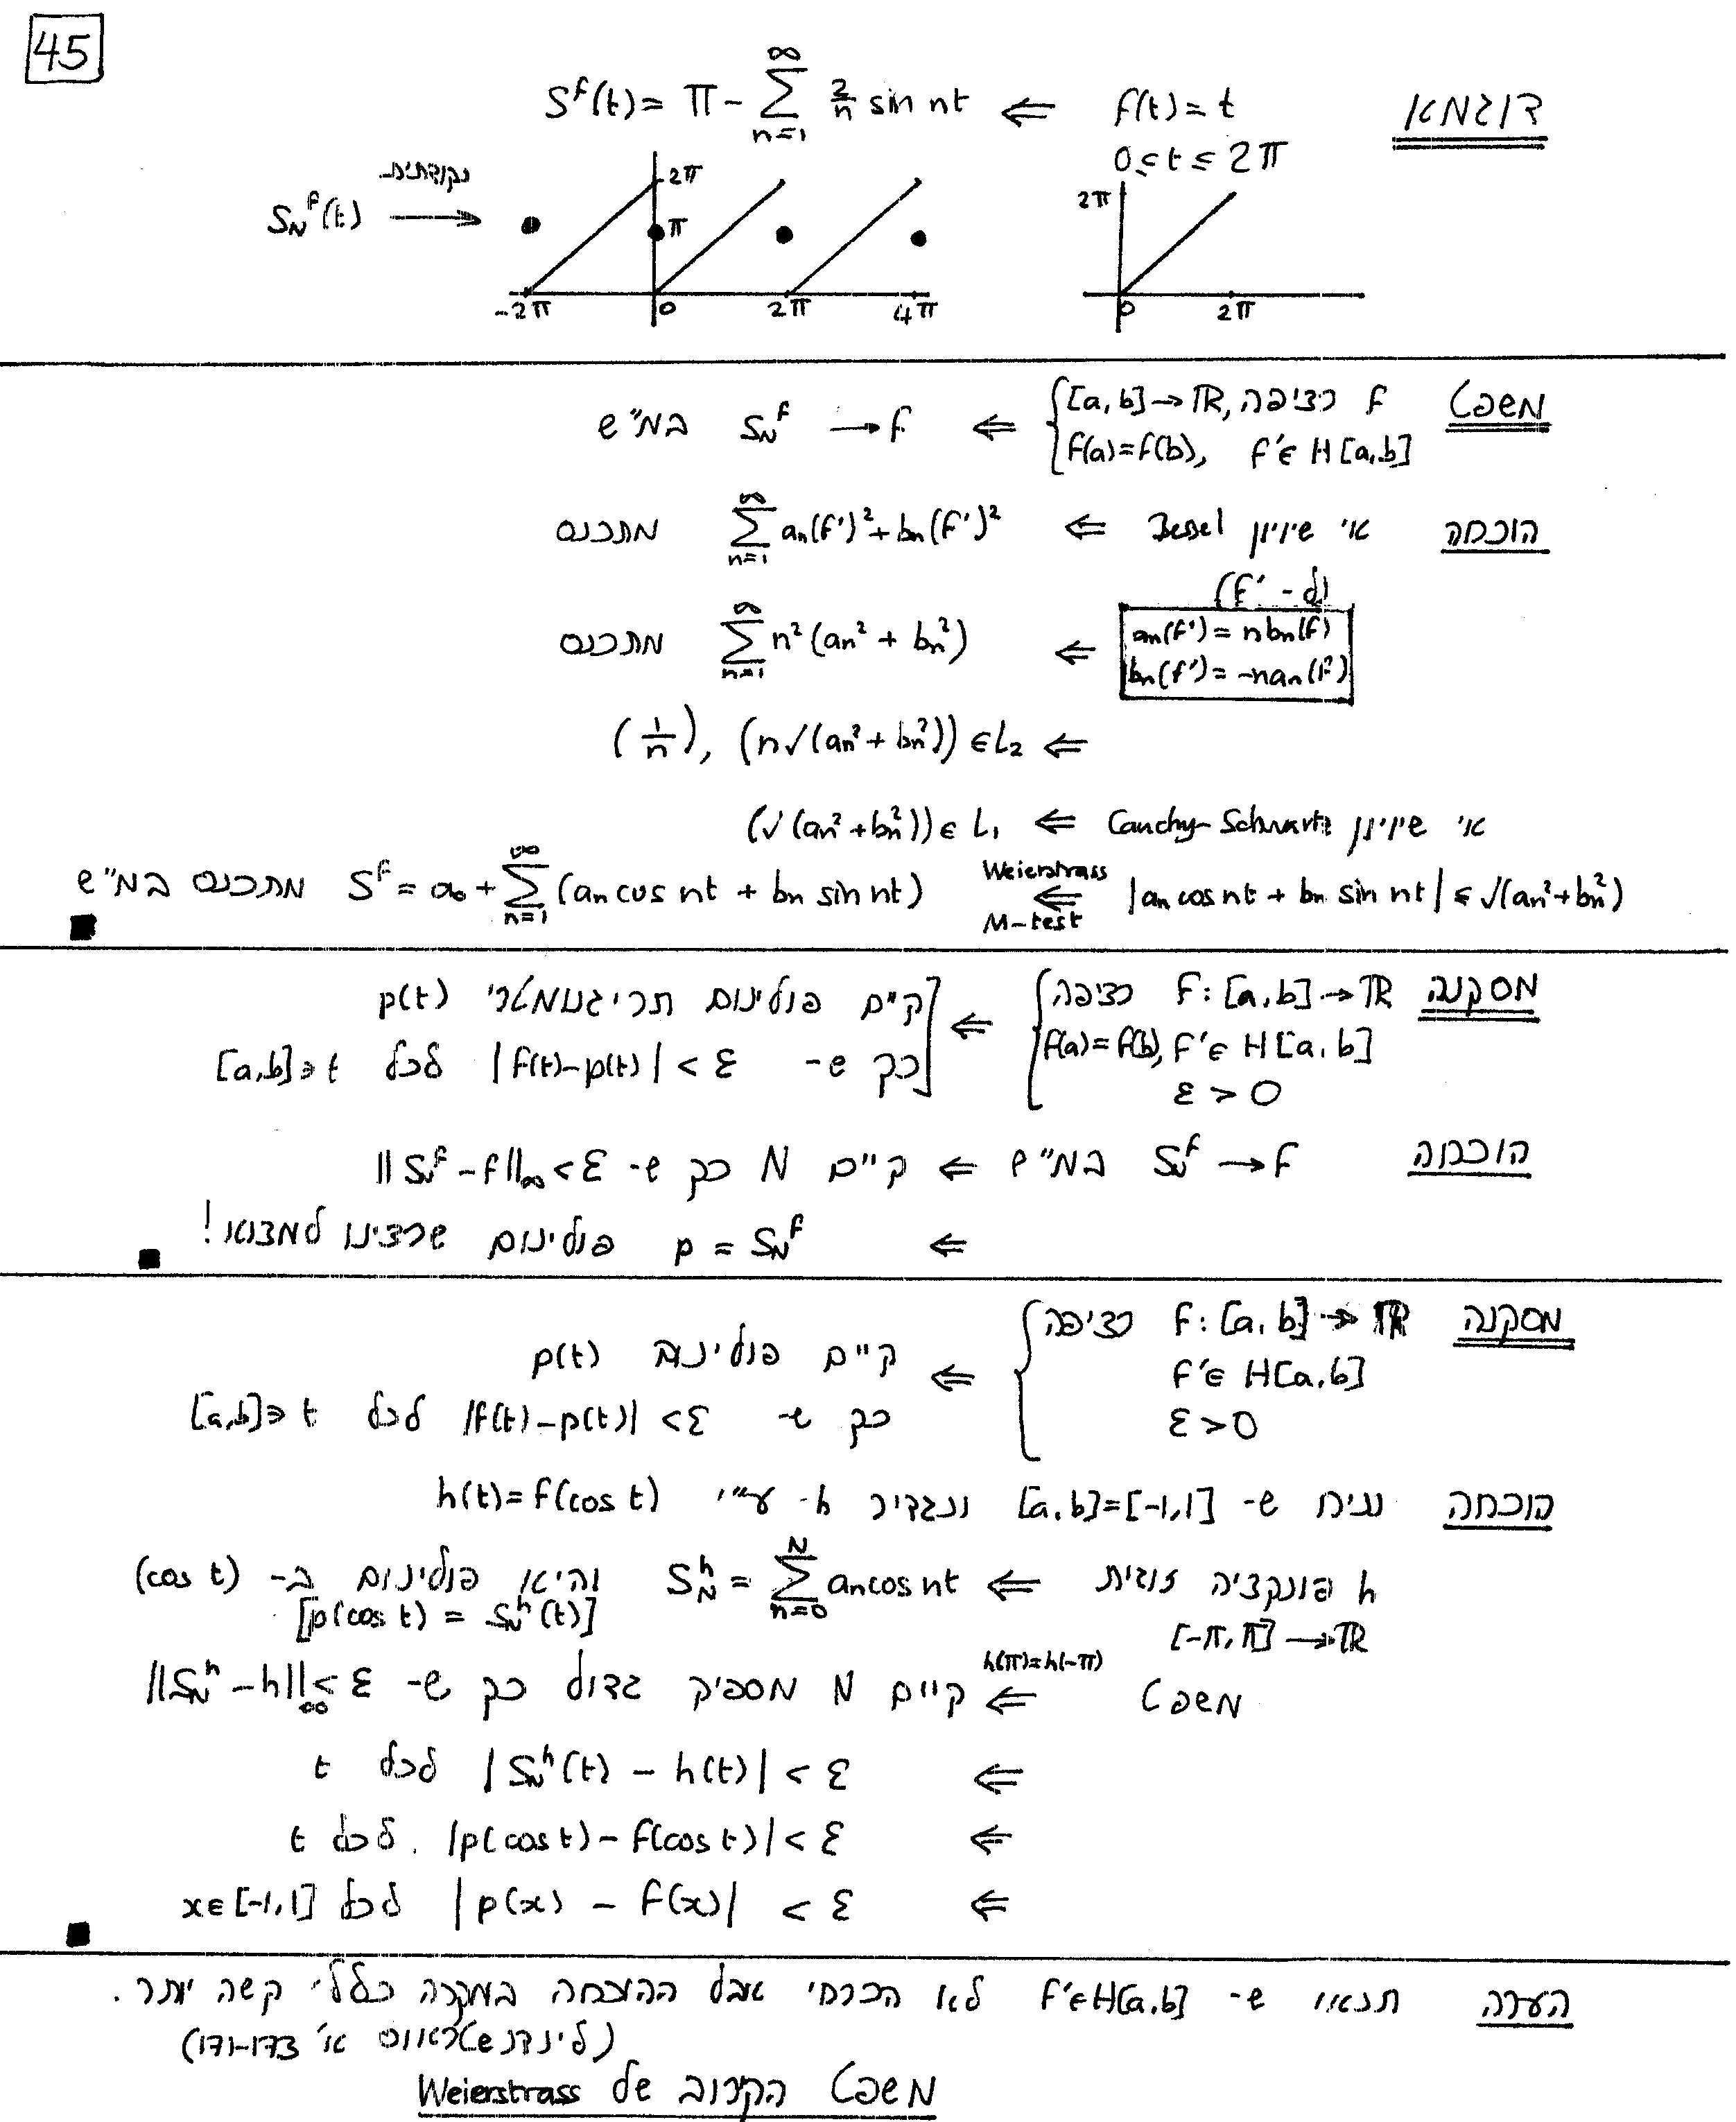 45
דוגמא f(t)=t ⇐ S^f(t) = π - ∑_{n=1}^{∞} 2/n sin nt
0≤t≤2π
S_N^f(t) → נקודתית
2π π -2π 0 2π 4π
2π 0 2π
משפט { f רציפה, [a,b]→ℝ ⇐ S_N^f → f במ"ש
f(a)=f(b), f'∈H[a,b]
הוכחה אי שיויון Bessel ⇐ ∑_{n=1}^{∞} a_n(f')²+b_n(f')² מתכנס
(ל- f')
a_n(f') = nb_n(f)
b_n(f') = -na_n(f)
⇐ ∑_{n=1}^{∞} n²(a_n² + b_n²) מתכנס
⇐ (1/n), (n√(a_n²+b_n²)) ∈ L₂
אי שיויון Cauchy-Schwartz ⇐ (√(a_n²+b_n²)) ∈ L₁
|a_n cos nt + b_n sin nt| ≤ √(a_n²+b_n²) ⇐ Weierstrass M-test S^f = a_0 + ∑_{n=1}^{∞} (a_n cos nt + b_n sin nt) מתכנס במ"ש
■
מסקנה { f: [a,b]→ℝ רציפה ⇐ [קיים פולינום תריגונומטרי p(t)
f(a)=f(b), f'∈H[a,b] כך ש- |f(t)-p(t)| < ε לכל t∈[a,b]
ε > 0
הוכחה S_N^f → f במ"ש ⇐ קיים N כך ש- ‖S_N^f - f‖_∞ < ε
⇐ p = S_N^f פולינום שרצינו למצוא!
■
מסקנה { f: [a,b]→ℝ רציפה ⇐ קיים פולינום p(t)
f'∈H[a,b] כך ש- |f(t)-p(t)| < ε לכל t∈[a,b]
ε>0
הוכחה נניח ש- [a,b]=[-1,1] ונגדיר h- ע"י h(t)=f(cos t)
h פונקציה זוגית ⇐ S_N^h = ∑_{n=0}^{N} a_n cos nt והיא פולינום ב- (cos t)
[-π,π]→ℝ [p(cos t) = S_N^h(t)]
משפט ⇐ h(π)=h(-π) קיים N מספיק גדול כך ש- ‖S_N^h - h‖_∞ < ε
⇐ |S_N^h(t) - h(t)| < ε לכל t
⇐ |p(cos t) - f(cos t)| < ε לכל t
⇐ |p(x) - f(x)| < ε לכל x∈[-1,1]
■
הערה תנאי ש- f'∈H[a,b] לא הכרחי אבל ההוכחה במקרה כללי קשה יותר.
(לינדנשטראוס א' 171-173)
משפט הקירוב של Weierstrass